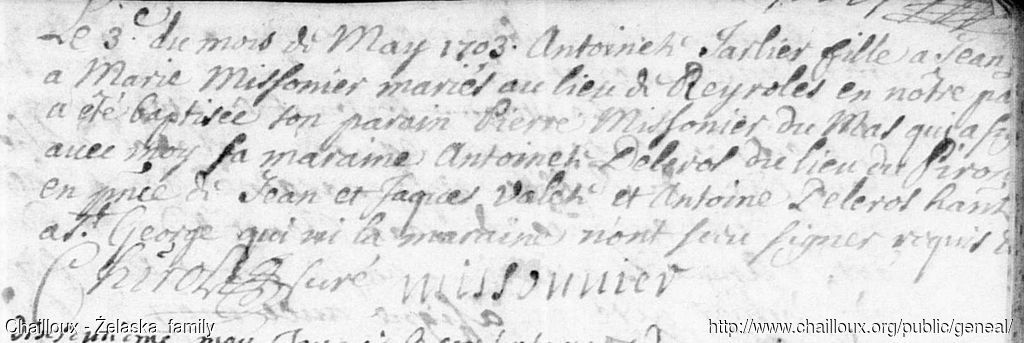 Le 3e du mois de May 1703. Antoinete Tarlier fille a Jean
a Marie Missonier mariés au lieu de Reyroles en nôtre pa
a été baptisée son parain Pierre Missonier du Mas qui a
avec moy sa maraine Antoinete Delerol du lieu du
en pnce de Jean et Jaques Valete et Antoine Delerol
a St George qui ni la maraine n'ont sceu signer requis
curé missonnier
may
Chailloux - Żelaska family
http://www.chailloux.org/public/geneal/